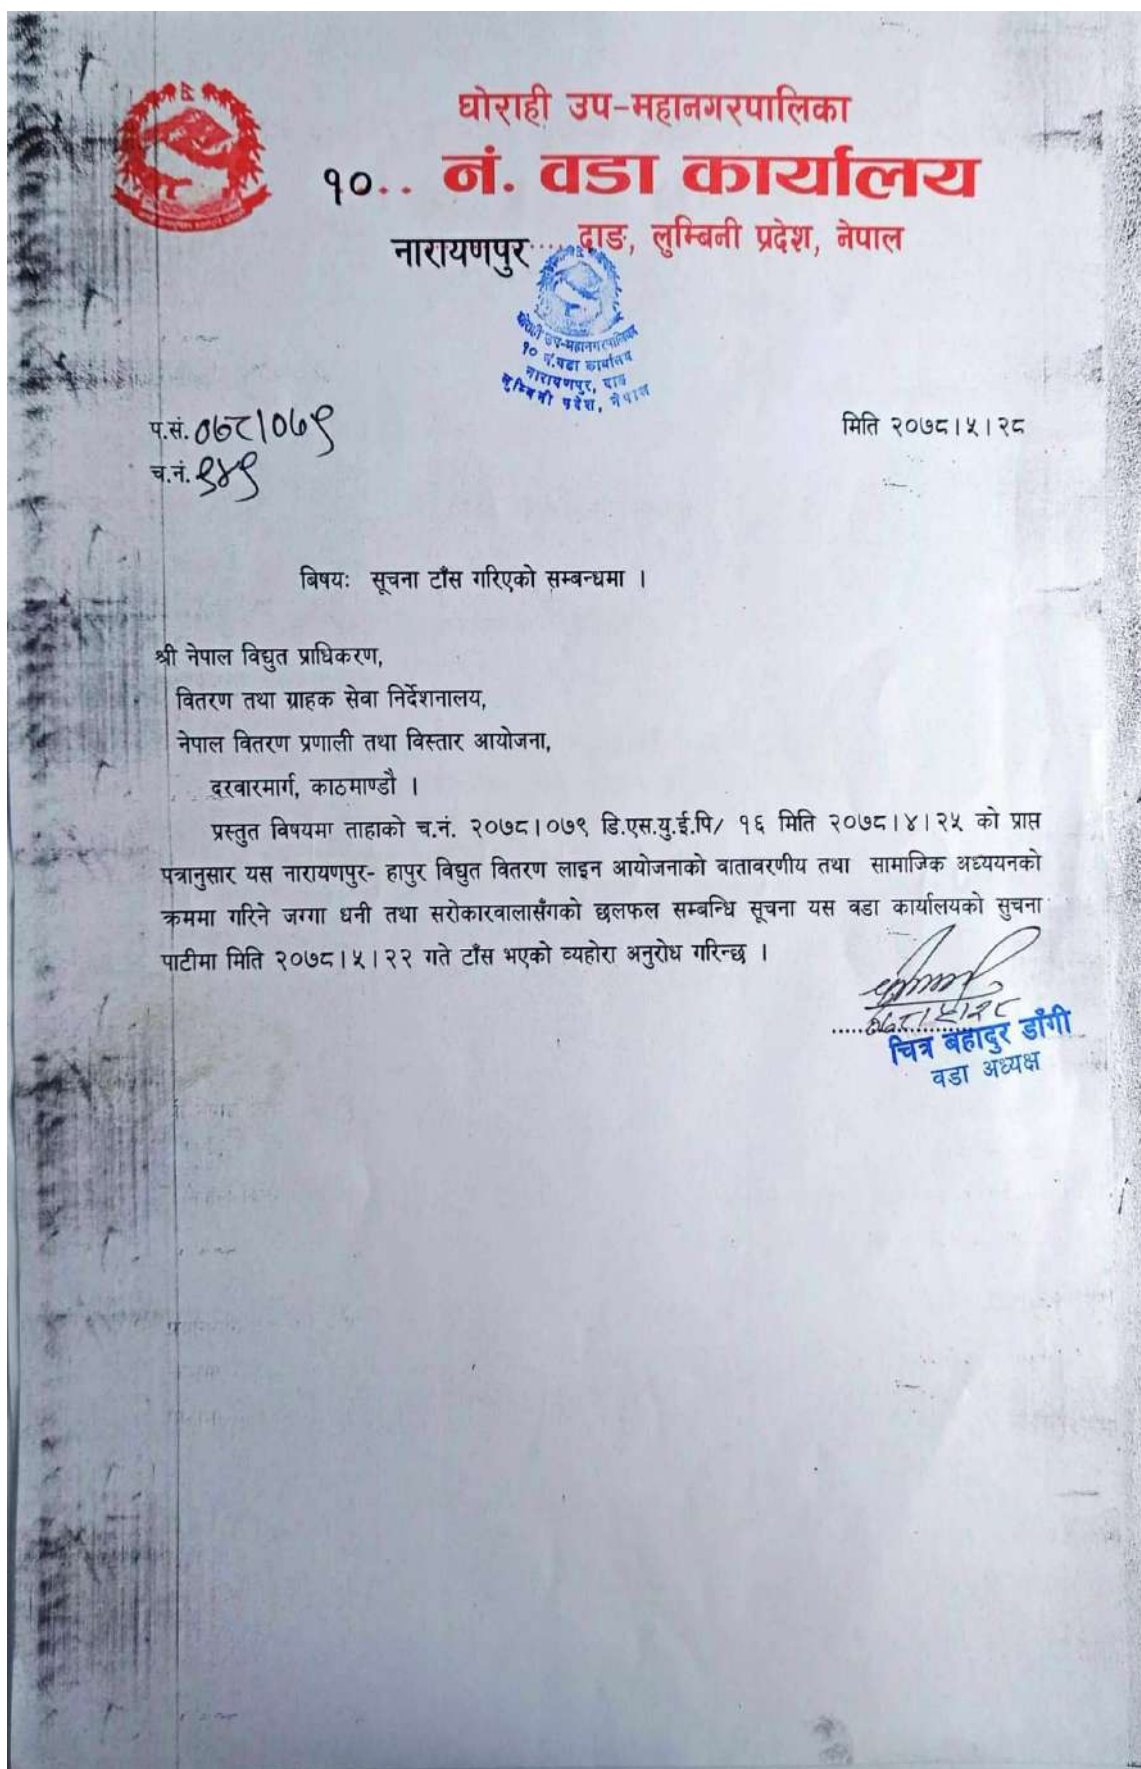 घोराही उप-महानगरपालिका
१०.. नं. वडा कार्यालय
नारायणपुर.... दाङ, लुम्बिनी प्रदेश, नेपाल
घोराही उप-महानगरपालिका
१० नं.वडा कार्यालय
नारायणपुर, दाङ
लुम्बिनी प्रदेश, नेपाल
प.सं. ०७८।०७९
मिति २०७८।५।२८
च.नं. १४९
बिषयः सूचना टाँस गरिएको सम्बन्धमा ।
श्री नेपाल विद्युत प्राधिकरण,
वितरण तथा ग्राहक सेवा निर्देशनालय,
नेपाल वितरण प्रणाली तथा विस्तार आयोजना,
दरवारमार्ग, काठमाण्डौ ।
प्रस्तुत विषयमा ताहाको च.नं. २०७८।०७९ डि.एस.यु.ई.पि/ १६ मिति २०७८।४।२५ को प्राप्त
पत्रानुसार यस नारायणपुर- हापुर विद्युत वितरण लाइन आयोजनाको वातावरणीय तथा सामाजिक अध्ययनको
क्रममा गरिने जग्गा धनी तथा सरोकारवालासँगको छलफल सम्बन्धि सूचना यस वडा कार्यालयको सुचना
पाटीमा मिति २०७८।५।२२ गते टाँस भएको व्यहोरा अनुरोध गरिन्छ ।
०७८।५।२८
चित्र बहादुर डाँगी
वडा अध्यक्ष